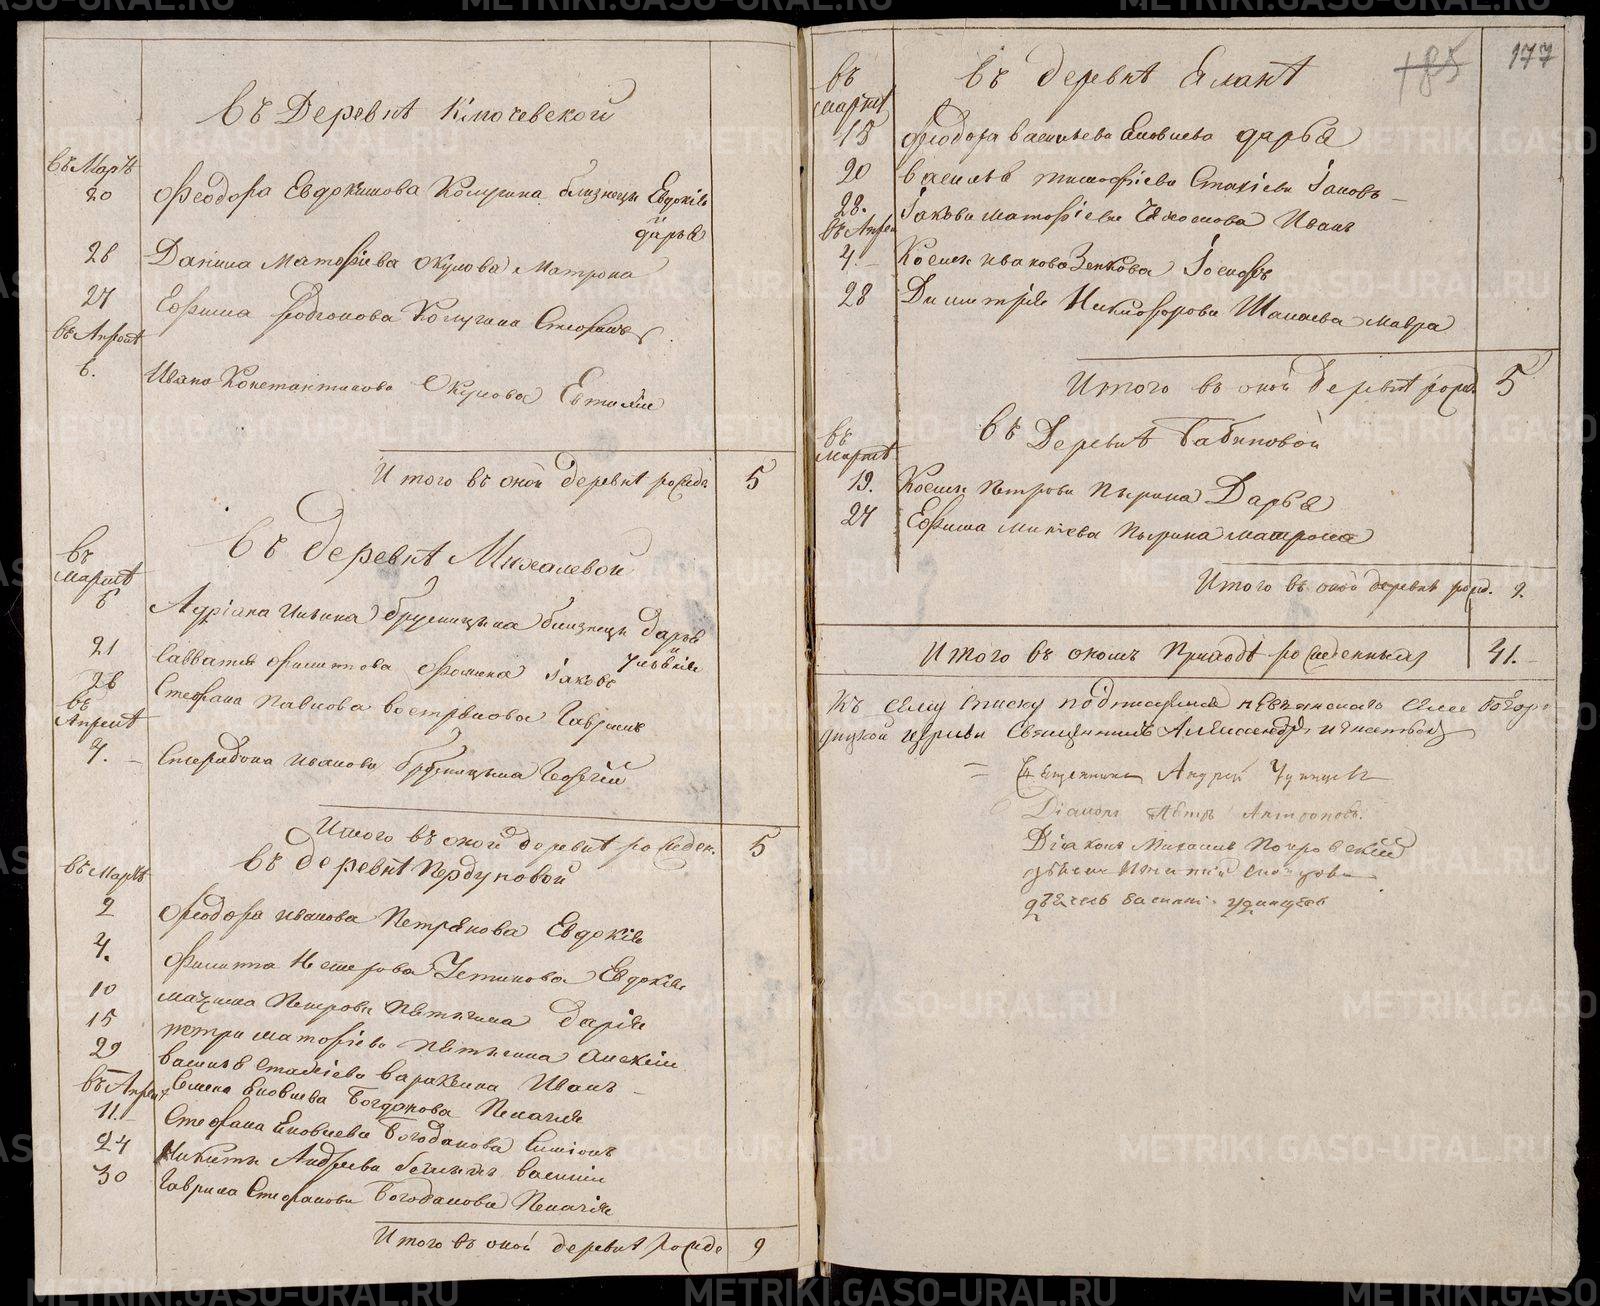 въ Деревнѣ Ключевской
въ Мартѣ
20 Феодора Евдокимова Колугина близнецы Евдокія
и
дарья
26 Данила Матфіева Окулова Матрона
27 Ефима родіонова Колугина Стефанъ
въ Апрѣлѣ
6. Ивана Константинова Окулова Евтихій
Итого въ оной деревнѣ рожде 5
въ деревнѣ Михалевой
въ
мартѣ
6 Адріана Ильина брусницына близнецы дарья
и
Улѣянія
21 Савватія филиппова фомина Іаковъ
26 Стефана Павлова вострякова Гаврилъ
въ
Апрелѣ
7. Спиридона иванова брусницына Георгій
Итого въ оной деревнѣ рожден. 5
въ деревнѣ Пердуновой
въ Мартѣ
2 феодора иванова Петрякова Евдокія
4. филиппа Нестерова Устинова Евдокія
10 махима Петрова Пѣтыгина Дарія
15 петра матфіева пѣтыгина Алексій
29 василья Стахіева варакина Иванъ
въ Апрелѣ Семена Яковлева Богданова Пелагія
11. Стефана Яковлева Богоданова Симіонъ
24 Никиты Андреева василій
30 Гаврила Стефанова Богоданова Пелагія
Итого въ оной деревнѣ рожде 9
185 177
въ деревнѣ Ялани
въ
мартѣ
15 феодора васильева Яковлева дарья
20 василья тимофіева Стахіева Іаковъ
28. Іакова матфіева Иванъ
въ Апрел
4. Косьмы иванова Зенкова Іосифъ
28 Димитрія Никифорова Шалаева мавра
Итого въ оной деревнѣ рожд 5
въ Деревнѣ Бабиновой
въ
Мартѣ
19. Косьмы Петрова Пырина Дарья
27 Ефима Пырина матрона
Итого въ оной деревнѣ рожд. 2.
Итого въ ономъ Приходѣ рожденныхъ 41.
Къ сему списку подписуемся невьянского села Богоро
дицкой церкви Священникъ Александръ Игнатьевъ
Священникъ Андрей Удинцевъ
Діаконъ Петръ Антроповъ.
Діаконъ Михаилъ Покровскій
дьячекъ
дьячекъ василій удинцевъ
METRIKI.GASO-URAL.RU